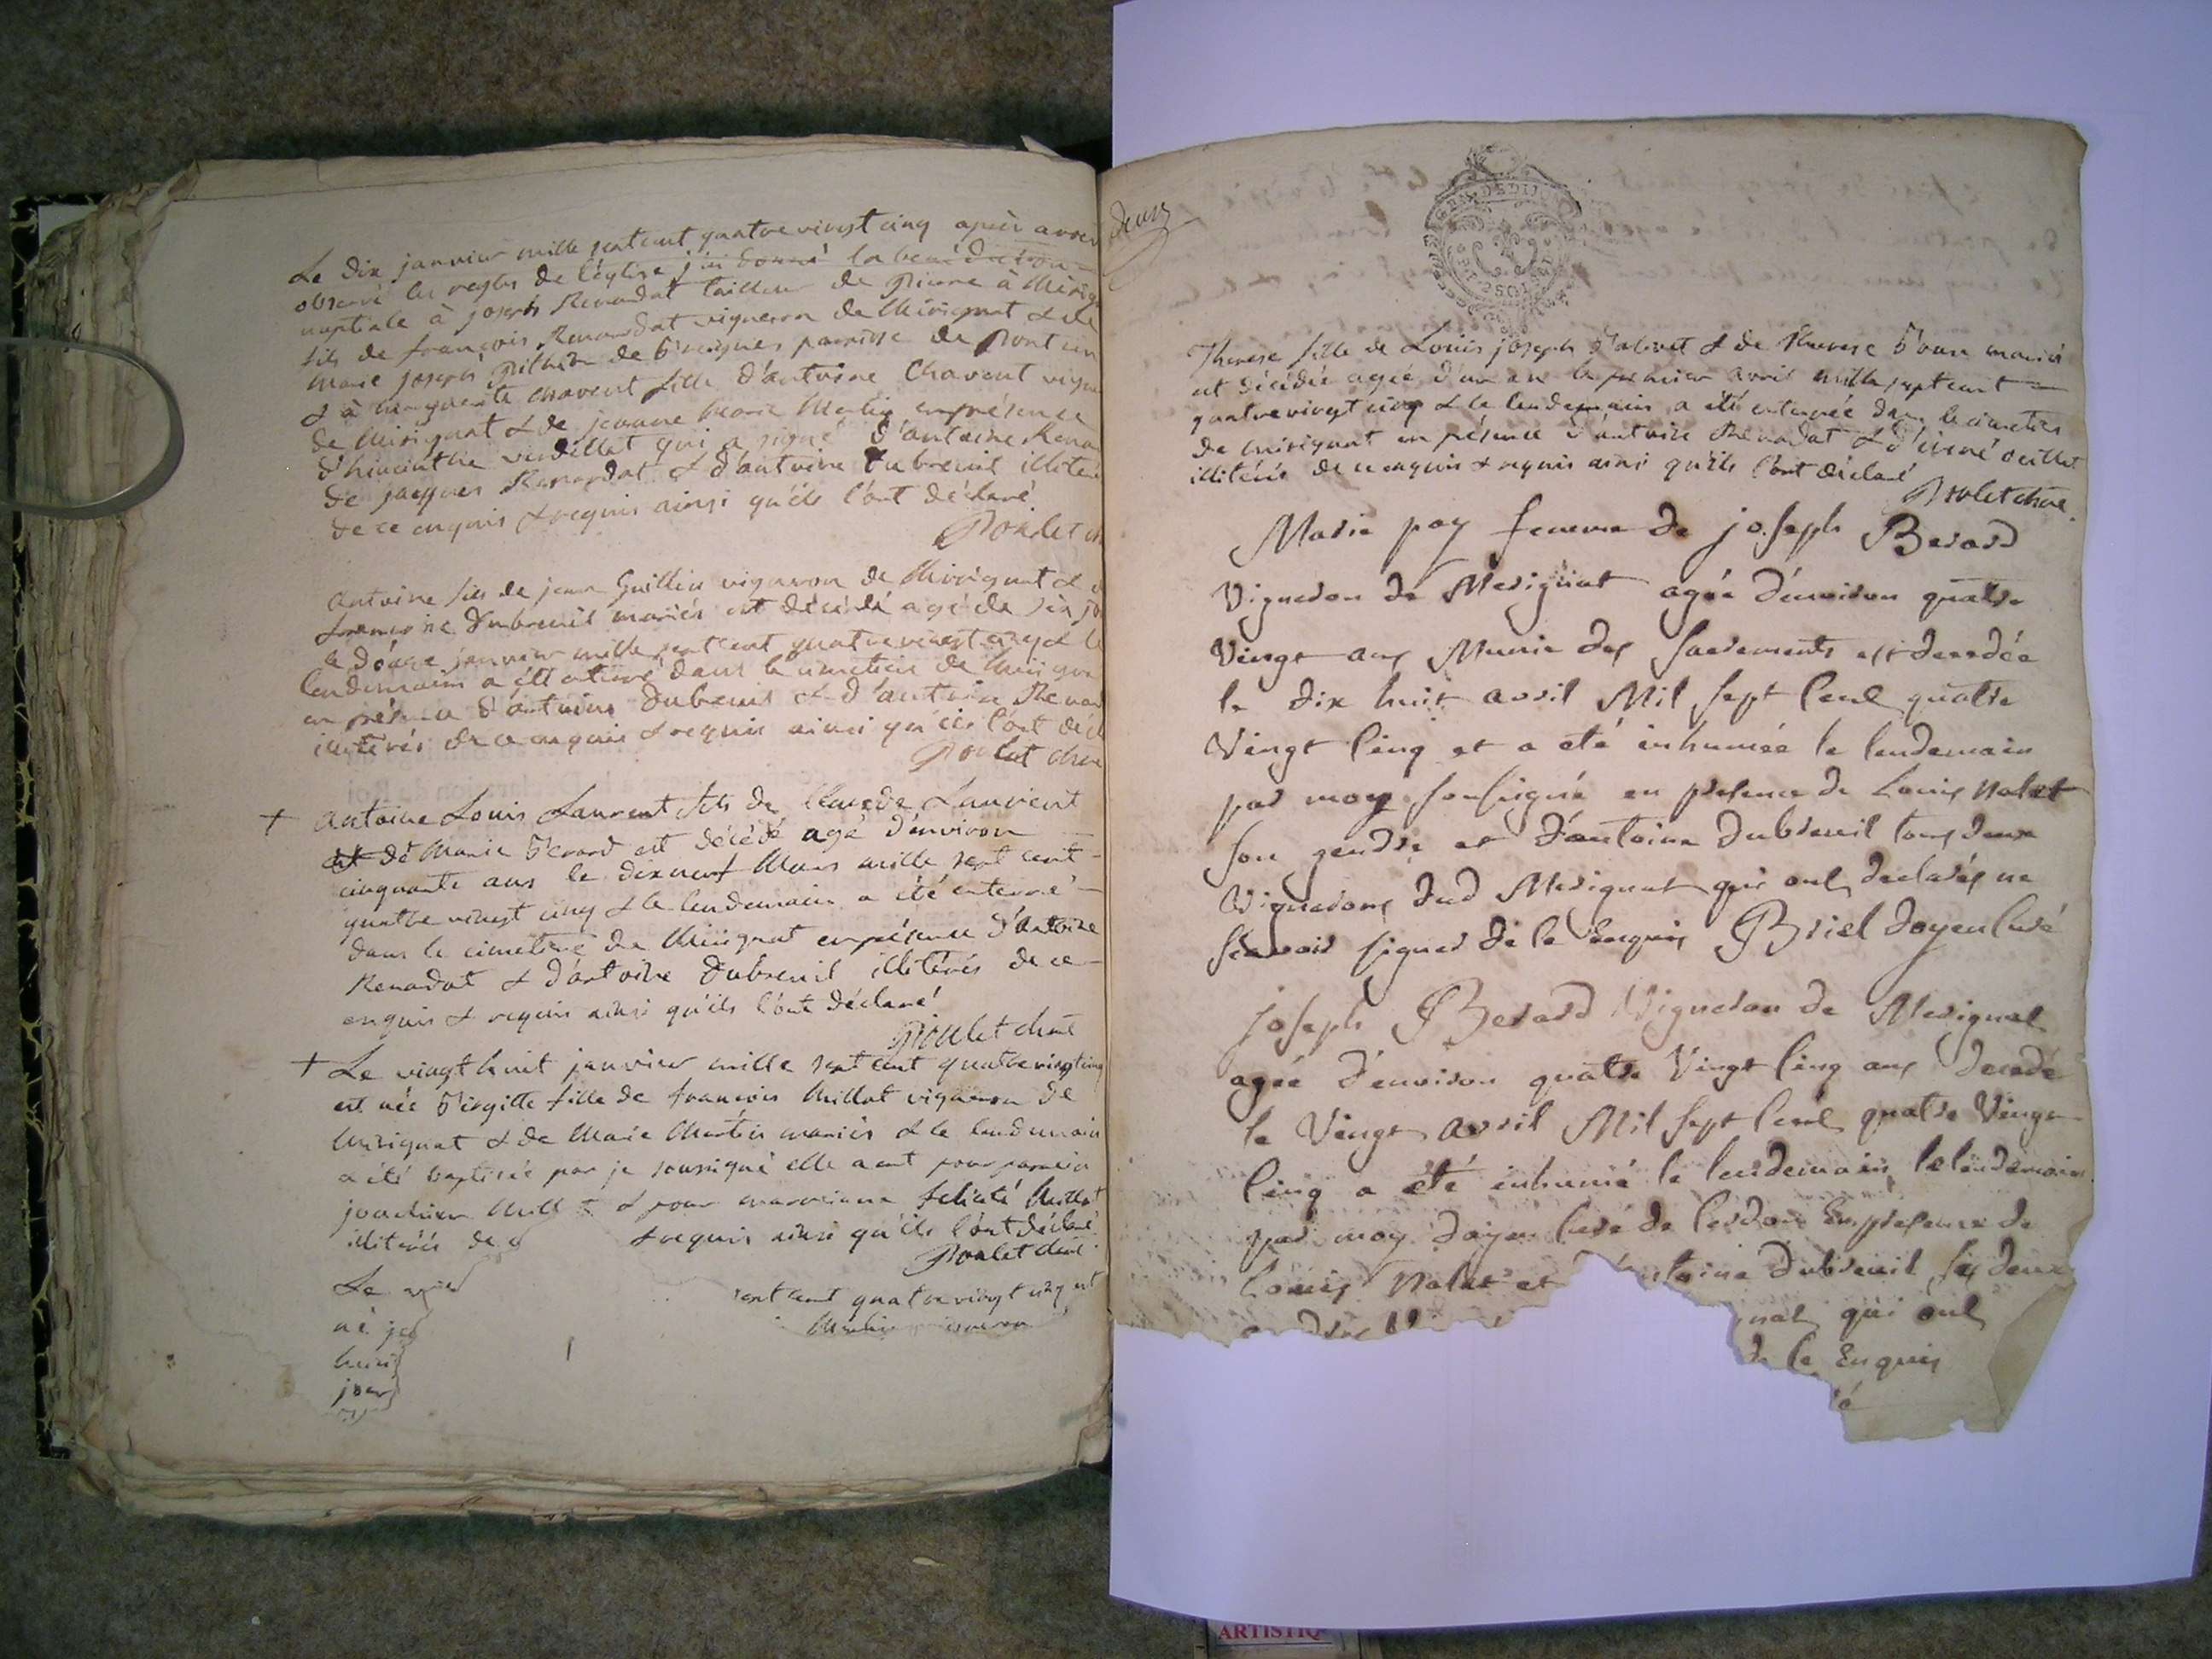 Le dix janvier mille sept cent quatre vingt cinq après avoir
observé les regles de l'église j'ai donné la benédiction
nuptiale à joseph Renardat tailleur de Pierre à Mérig
fils de françois Renardat vigneron de Mérignat & de
marie joseph de parroisse de Pontcin
& à marguerite Chavent fille d'antoine Chavent vign
de Mérignat & de jeanne marie Merlin en présence
d'hiacinthe verdellet qui a signé d'antoine Rena
de jacques Renardat & d'antoine Dubreuil illiteré
de ce enquis & requis ainsi qu'ils l'ont déclaré
antoine fils de jean Guillin vigneron de Mérignat & d
françoise Dubreuil mariés est décédé agé de six jo
le douze janvier mille sept cent quatre vingt cinq & le
lendemain a été enterré dans le cimetiere de Mérigna
en présence d'antoine Dubreuil & d'antoine Renar
illiterés de ce enquis & requis ainsi qu'ils l'ont décl
+ antoine Louis Laurent fils de Claude Laurent
& de Marie Berard est décédé agé d'environ
cinquante ans le dixneuf Mars mille sept cent
quatre vingt cinq & le lendemain a été enterré
dans le cimetiere de Mérignat en présence d'Antoine
Renardat & d'antoine Dubreuil illiterés de ce
enquis & requis ainsi qu'ils l'ont déclaré
+ Le vingt huit janvier mille sept cent quatre vingt cinq
est née Birgitte fille de françois Millet vigneron de
Mérignat & de Marie Martin mariés & le lendemain
a été baptisée par je soussigné elle a eut pour parrein
joachim Mill & pour marreinne felicité Millet
illiterés de c & requis ainsi qu'ils l'ont déclaré
Le vin sept cent quatre vingt cinq est
né jo Merlin vigneron
jour
deux
GEN. DEDIJON
2 SOLS
Therese fille de Louis joseph & de Therese mariés
est décédée agée d'un an le premier avril mille sept cent
quatre vingt cinq & le lendemain a été enterrée dans le cimetiere
de mérignat en présence d'antoine Renardat &
illitérés de ce enquis & requis ainsi qu'ils l'ont déclaré
Marie pay femme de joseph Berard
Vigneron de Merignat agée d'environ quatre
Vingt ans Munie des sacrements est decedée
le dix huit avril Mil sept Cent quatre
Vingt Cinq et a eté inhumée le lendemain
par moy soussigné en presence de Louis Nalet
son gendre et d'antoine Dubreuil tous deux
Vignerons dud Merignat qui ont declarés ne
scavoir signer de ce enquis Briel doyen Curé
joseph Berard Vigneron de Merignat
agée d'environ quatre Vingt Cinq ans decedé
le Vingt avril Mil sept Cent quatre Vingt
Cinq a été inhumé le lendemain le lendemain
par moy doyen Curé de Cerdon En presence de
Louis Nalet et antoine Dubreuil ses deux
nat qui ont
de ce Enquis
é
ARTISTIQ